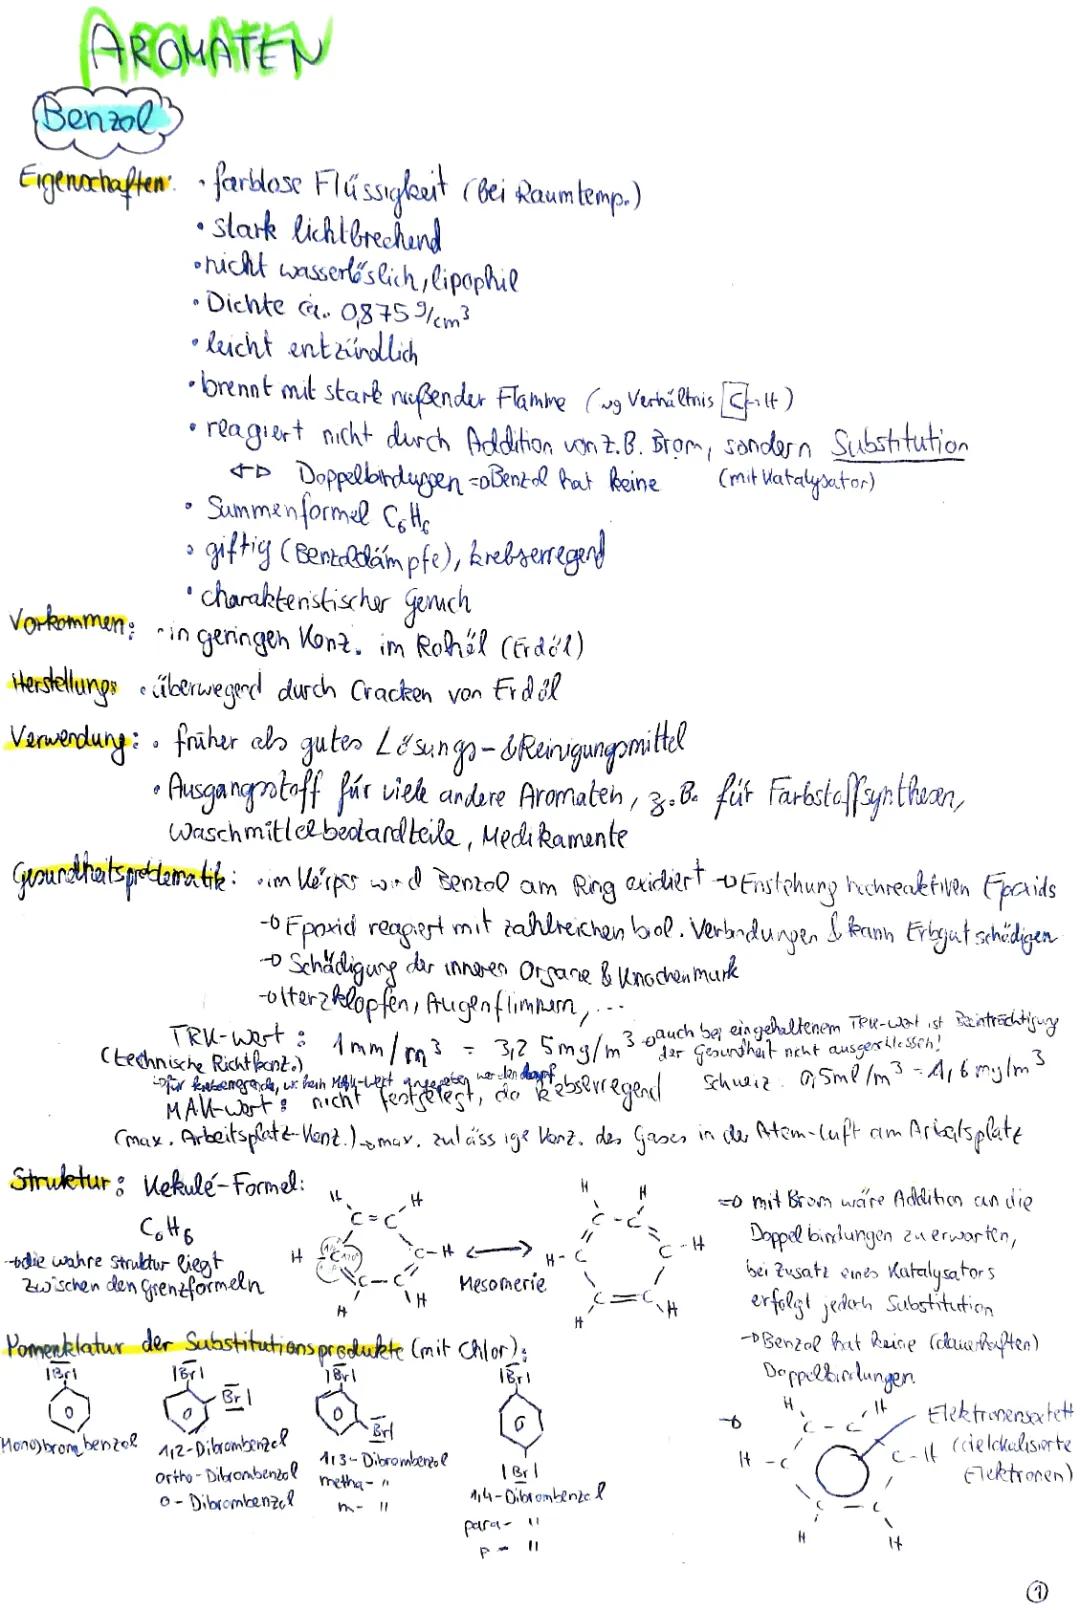 AROMATEN
Benzol
Eigenschaften: • farblose Flüssigkeit (Bei Raumtemp.)
• stark lichtbrechend
• nicht wasserlöslich, lipophil
• Dichte ca. 0,875 g/cm³
• leicht entzündlich
• brennt mit stark rußender Flamme (wg Verhältnis C-H)
• reagiert nicht durch Addition von z.B. Brom, sondern Substitution
↔ Doppelbindungen ⇒ Benzol hat keine (mit Katalysator)
• Summenformel C₆H₆
• giftig (Benzoldämpfe), krebserregend
• charakteristischer Geruch
Vorkommen: • in geringen Konz. im Rohöl (Erdöl)
Herstellung: • überwegend durch Cracken von Erdöl
Verwendung: • früher als gutes Lösungs- & Reinigungsmittel
• Ausgangsstoff für viele andere Aromaten, z.B. für Farbstoffsynthesen,
Waschmittelbestandteile, Medikamente
Gesundheitsproblematik: • im Körper wird Benzol am Ring oxidiert → Enstehung hochreaktiven Epoxids
→ Epoxid reagiert mit zahlreichen biol. Verbindungen & kann Erbgut schädigen
→ Schädigung der inneren Organe & Knochenmark
→ Herzklopfen, Augenflimmern, ...
TRK-Wert: 1mm/m³ = 3,25mg/m³ → auch bei eingehaltenem TRK-Wert ist Beinträchtigung
(technische Richtkonz.) der Gesundheit nicht ausgeschlossen!
→ für krebserregende, wo kein MAK-Wert angegeben werden darf Schweiz: 0,5ml/m³ = 1,6mg/m³
MAK-Wert: nicht festgelegt, da krebserregend
(max. Arbeitsplatz-Konz.) → max. zulässige Konz. des Gases in der Atem-Luft am Arbeitsplatz
Struktur: Kekulé-Formel:
C₆H₆
→ die wahre Struktur liegt
zwischen den Grenzformeln
H H
C=C
H -C C-H
C-C
H H
Mesomerie
H H
C-C
H-C C-H
C=C
H H
⇒ mit Brom wäre Addition an die
Doppelbindungen zu erwarten,
bei Zusatz eines Katalysators
erfolgt jedoch Substitution
→ Benzol hat keine (dauerhaften)
Doppelbindungen
H H
C-C
H-C C-H
C-C
H H
Elektronensextett
(delokalisierte
Elektronen)
Nomenklatur der Substitutionsprodukte (mit Chlor):
|Br| |Br| |Br| |Br|
Br| Br|
|Br|
(Mono)brombenzol
1,2-Dibrombenzol
ortho-Dibrombenzol
o-Dibrombenzol
1,3-Dibrombenzol
metha- "
m- "
1,4-Dibrombenzol
para- "
p- "
1